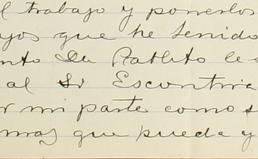 l trabajo y ponerlos
jos que he tenido
nto Don Pablito le
al Sr Escontria
r mi parte como s
mas que pueda y